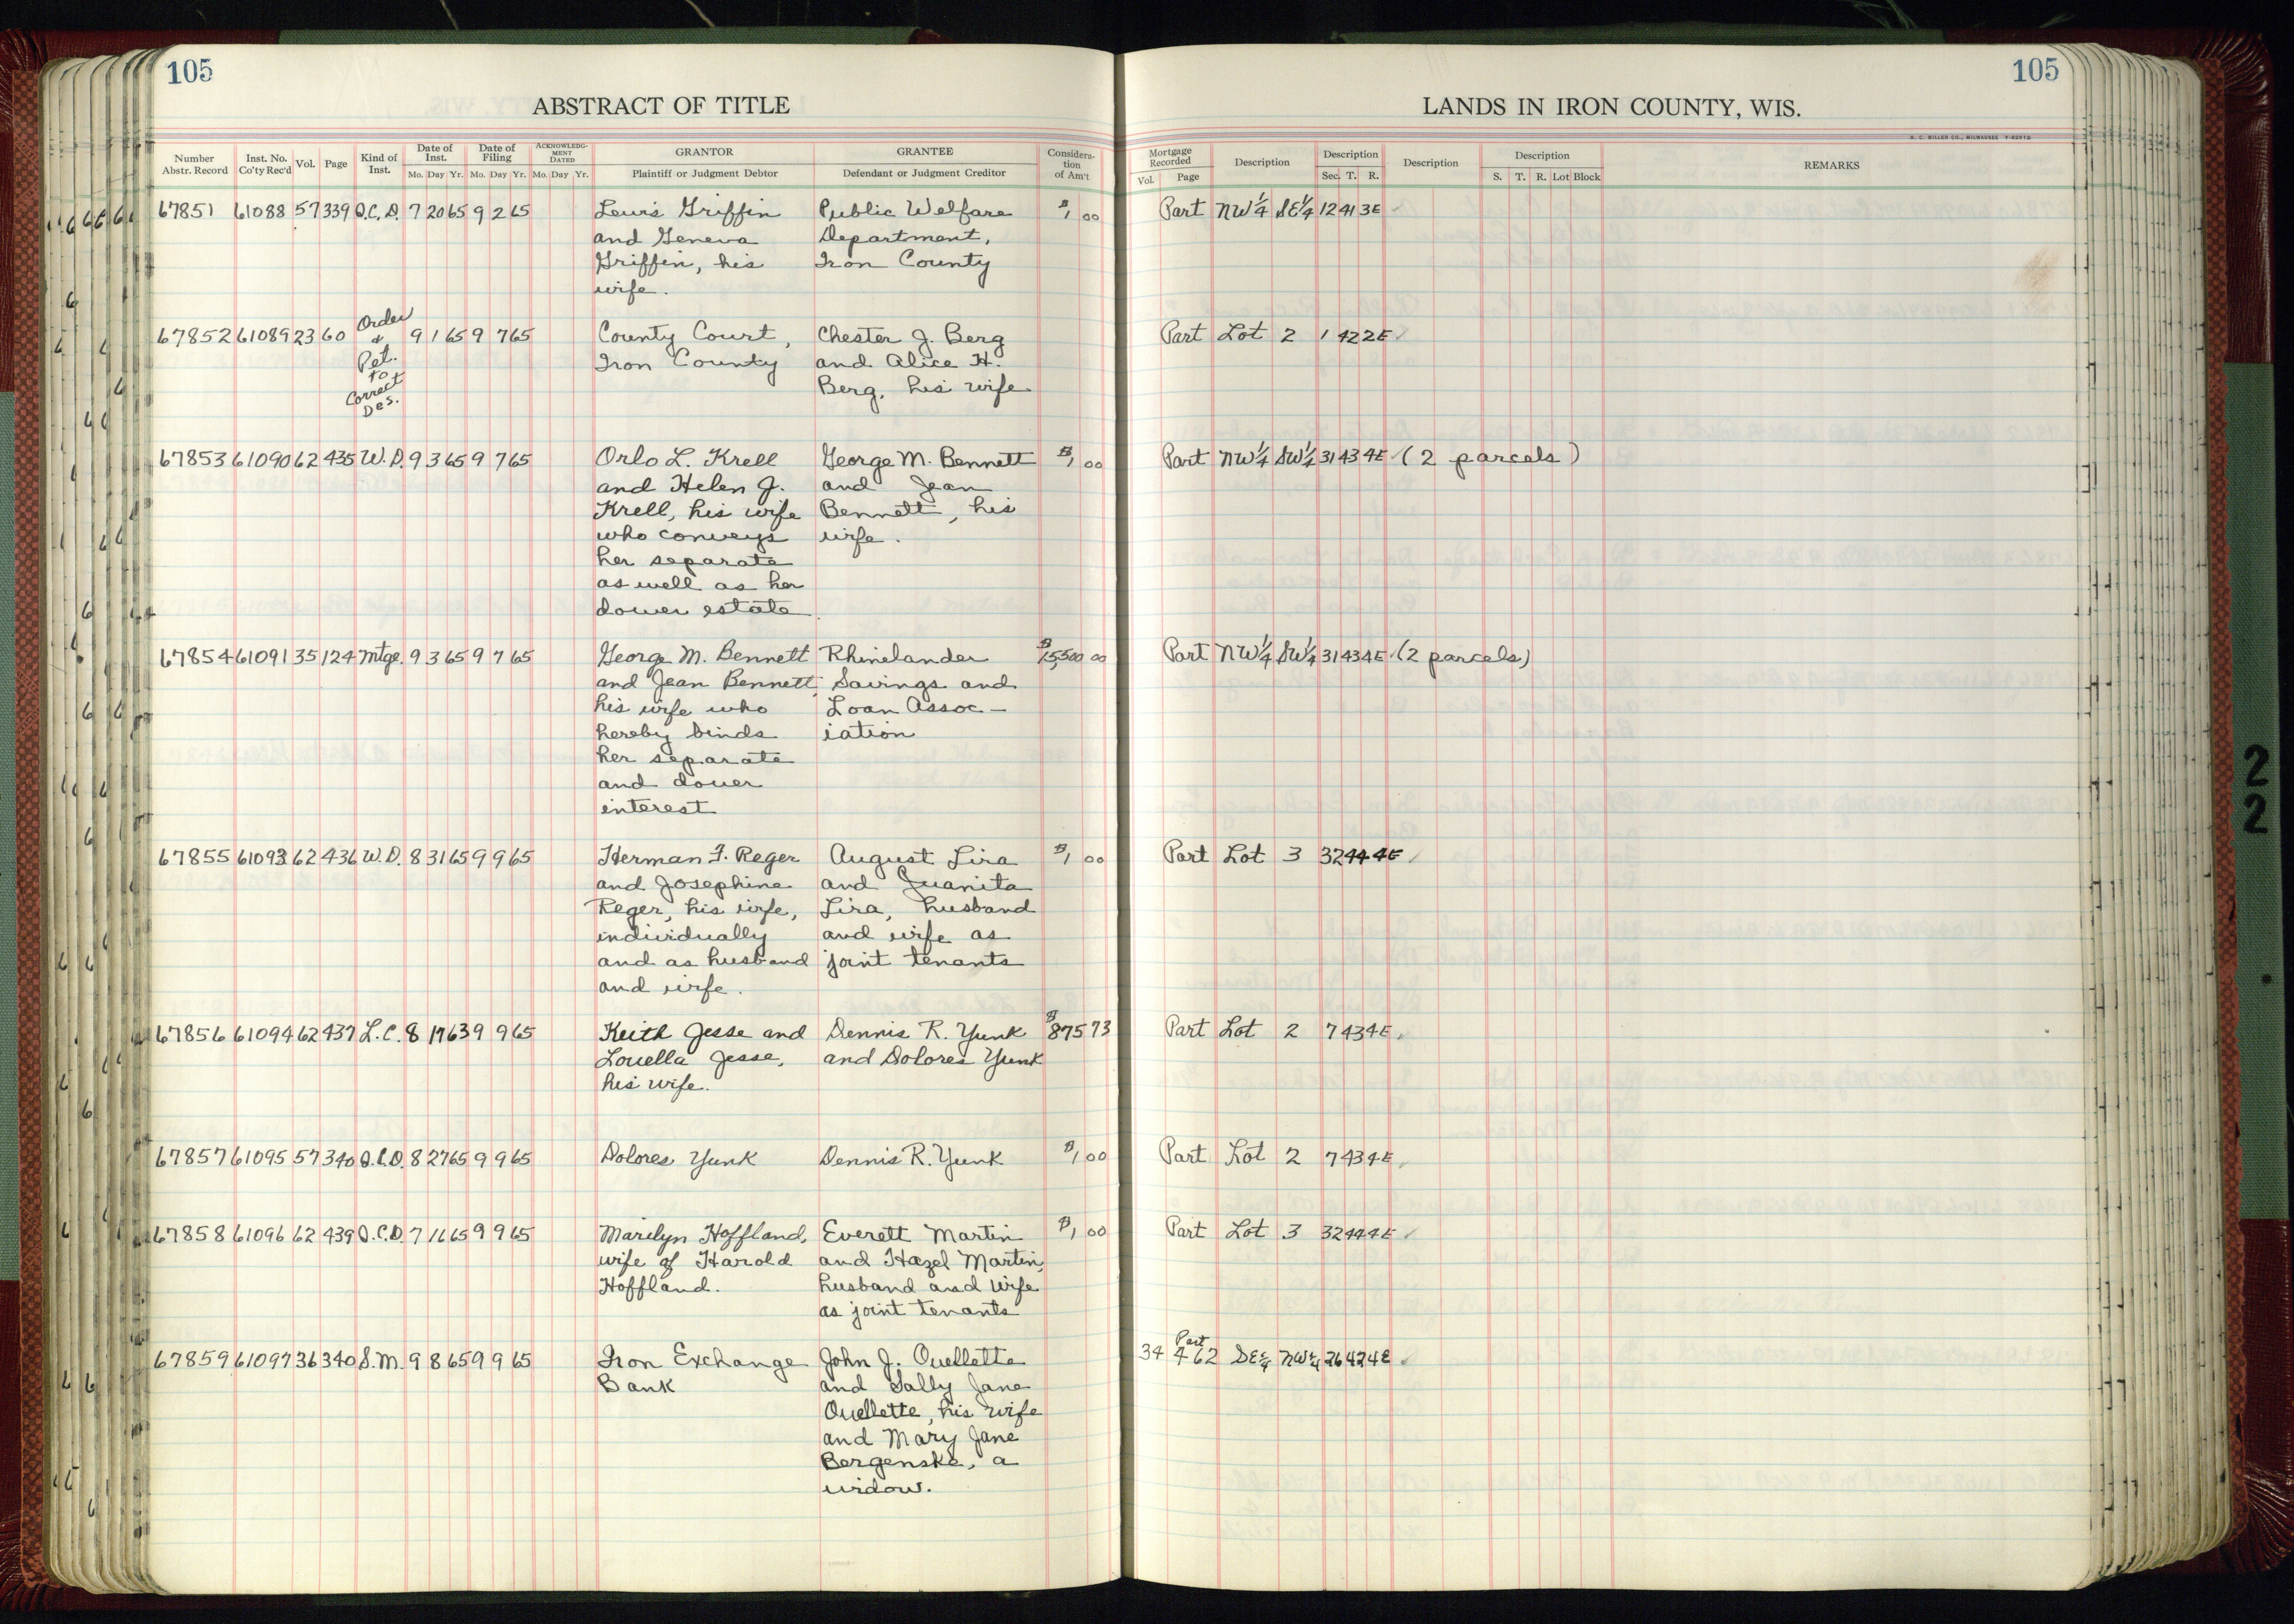 105
105
ABSTRACT OF TITLE
LANDS IN IRON COUNTY, WIS.
Number Abstr. Record Inst. No. Co'ty Rec'd Vol. Page Kind of Inst. Date of Inst. Mo. Day Yr. Date of Filing Mo. Day Yr. ACKNOWLEDGMENT DATED Mo. Day Yr. GRANTOR Plaintiff or Judgment Debtor GRANTEE Defendant or Judgment Creditor Consideration of Am't Mortgage Recorded Vol. Page Description Description Sec. T. R. Description Description S. T. R. Lot Block REMARKS
67851 61088 57 339 Q.C.D. 7 20 65 9 2 65 Lewis Griffin Public Welfare $1,00 Part NW¼ SE¼ 12 41 3E
and Geneva Department,
Griffin, his Iron County
wife.
67852 61089 23 60 Order & Pet. to Correct Des. 9 1 65 9 7 65 County Court, Chester J. Berg Part Lot 2 1 42 2E
Iron County and Alice H.
Berg, his wife
67853 61090 62 435 W.D. 9 3 65 9 7 65 Orlo L. Krell George M. Bennett $1,00 Part NW¼ SW¼ 31 43 4E (2 parcels)
and Helen J. and Jean
Krell, his wife Bennett, his
who conveys wife.
her separate
as well as her
dower estate
67854 61091 35 124 Mtge. 9 3 65 9 7 65 George M. Bennett Rhinelander $15,500 00 Part NW¼ SW¼ 31 43 4E (2 parcels)
and Jean Bennett, Savings and
his wife who Loan Assoc-
hereby binds iation
her separate
and dower
interest
67855 61093 62 436 W.D. 8 31 65 9 9 65 Herman F. Reger August Lira $1,00 Part Lot 3 32 44 4E
and Josephine and Juanita
Reger, his wife, Lira, husband
individually and wife as
and as husband joint tenants
and wife.
67856 61094 62 437 L.C. 8 17 63 9 9 65 Keith Jesse and Dennis R. Yunk $875 73 Part Lot 2 7 43 4E
Louella Jesse, and Dolores Yunk
his wife.
67857 61095 57 340 Q.C.D. 8 27 65 9 9 65 Dolores Yunk Dennis R. Yunk $1,00 Part Lot 2 7 43 4E
67858 61096 62 439 Q.C.D. 7 16 65 9 9 65 Marilyn Hoffland, Everett Martin $1,00 Part Lot 3 32 44 4E
wife of Harold and Hazel Martin,
Hoffland. husband and wife
as joint tenants
67859 61097 36 340 S.M. 9 8 65 9 9 65 Iron Exchange John J. Ouellette 34 Part 462 SE¼ NW¼ 26 42 4E
Bank and Sally Jane
Ouellette, his wife
and Mary Jane
Bergenske, a
widow.
2
2